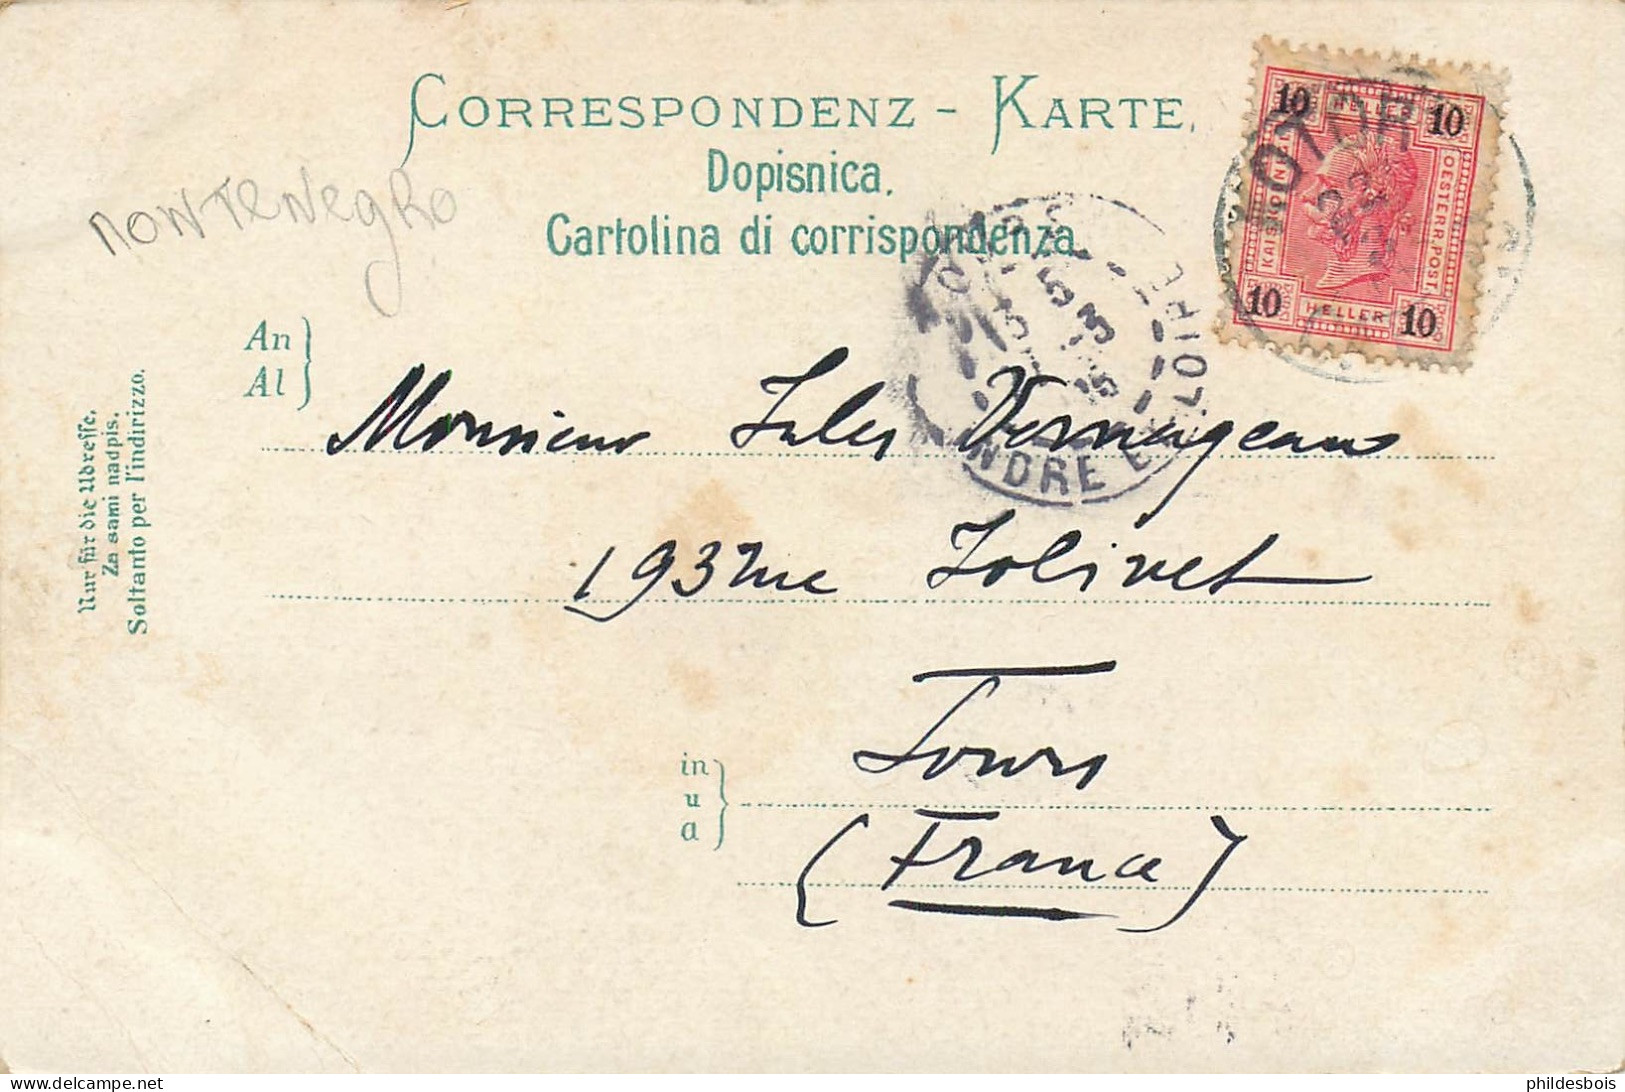 CORRESPONDENZ - KARTE.
Dopisnica.
Cartolina di corrispondenza.
MONTENEGRO
10 HELLER 10
KAIS. KÖNIGL.
OESTERR. POST.
10 HELLER 10
OTOR
TOURS
INDRE ET LOIRE
An
Al
Monsieur Jules
193 rue Jolivet
Tours
(France)
in
u
a
Nur für die Adresse.
Za sami nadpis.
Soltanto per l'indirizzo.
phildesbois